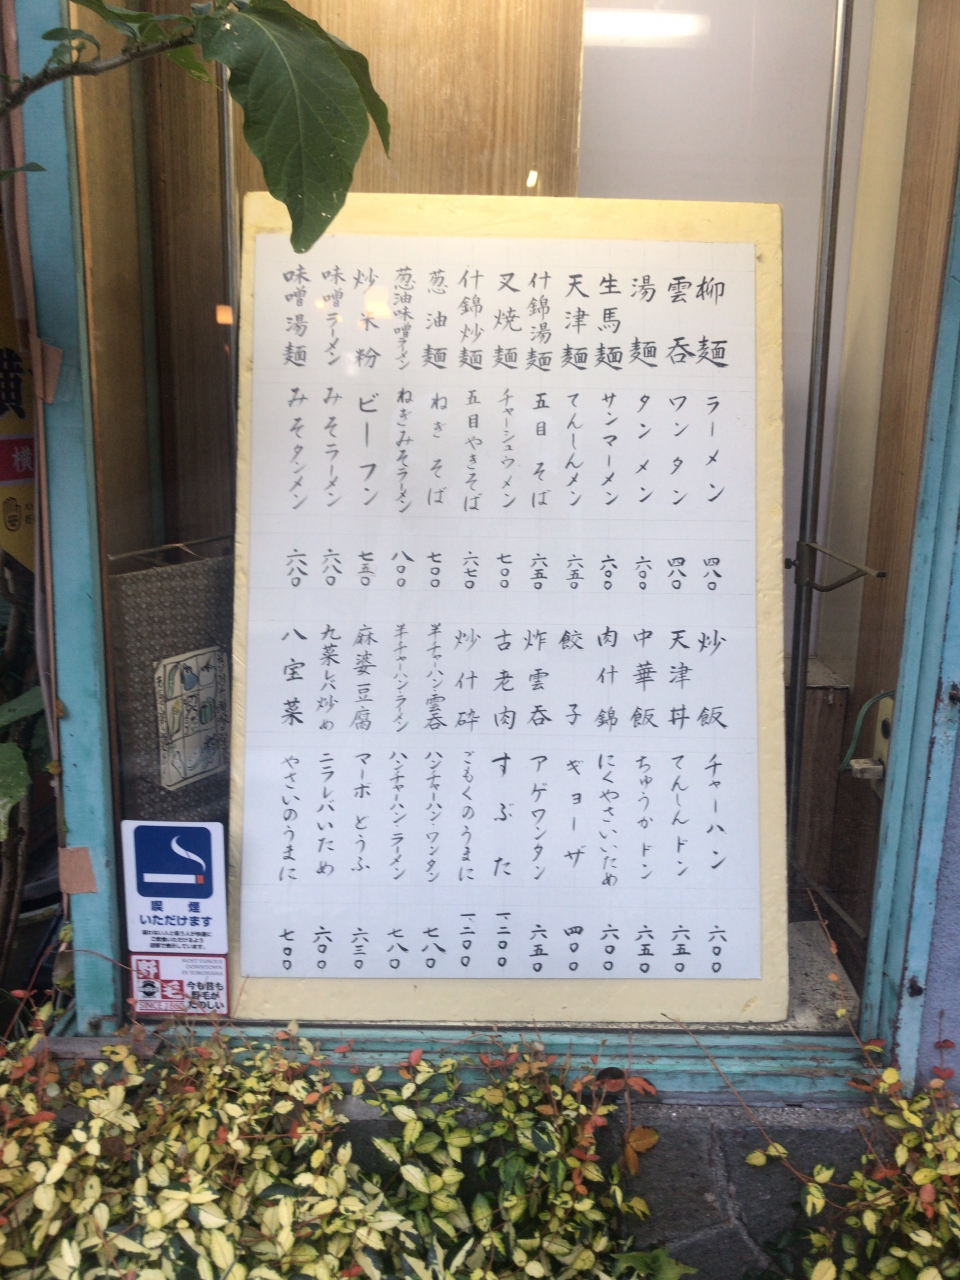 柳麺 ラーメン 四八〇
雲呑 ワンタン 四八〇
湯麺 タンメン 六〇〇
生馬麺 サンマーメン 六〇〇
天津麺 てんしんメン 六五〇
什錦湯麺 五目そば 六五〇
叉焼麺 チャーシュウメン 七〇〇
什錦炒麺 五目やきそば 六七〇
葱油麺 ねぎそば 七〇〇
葱油味噌ラーメン ねぎみそラーメン 八〇〇
炒米粉 ビーフン 七五〇
味噌ラーメン みそラーメン 六八〇
味噌湯麺 みそタンメン 六八〇
炒飯 チャーハン 六〇〇
天津丼 てんしんドン 六五〇
中華飯 ちゅうかドン 六五〇
肉什錦 にくやさいいため 六〇〇
餃子 ギョーザ 四〇〇
炸雲呑 アゲワンタン 六五〇
古老肉 すぶた 一、二〇〇
炒什砕 ごもくのうまに 一、二〇〇
半チャーハン・雲呑 ハンチャーハン・ワンタン 七八〇
半チャーハンラーメン ハンチャーハン・ラーメン 七八〇
麻婆豆腐 マーボどうふ 六三〇
九菜レバ炒め ニラレバいため 六〇〇
八宝菜 やさいのうまに 七〇〇
喫煙
いただけます
野毛
SINCE 1859
MOST FAMOUS
DOWNTOWN
IN YOKOHAMA
今も昔も
野毛が
たのしい
横